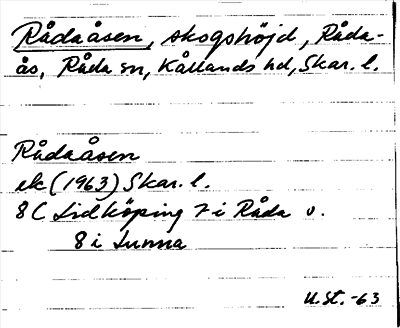 Rådaåsen, skogshöjd, Råda-
ås, Råda sn, Kållands hd, Skar. l.
Rådaåsen
ek (1963) Skar. l.
8 C Lidköping 7 i Råda o.
8 i Lunna
U.St.-63